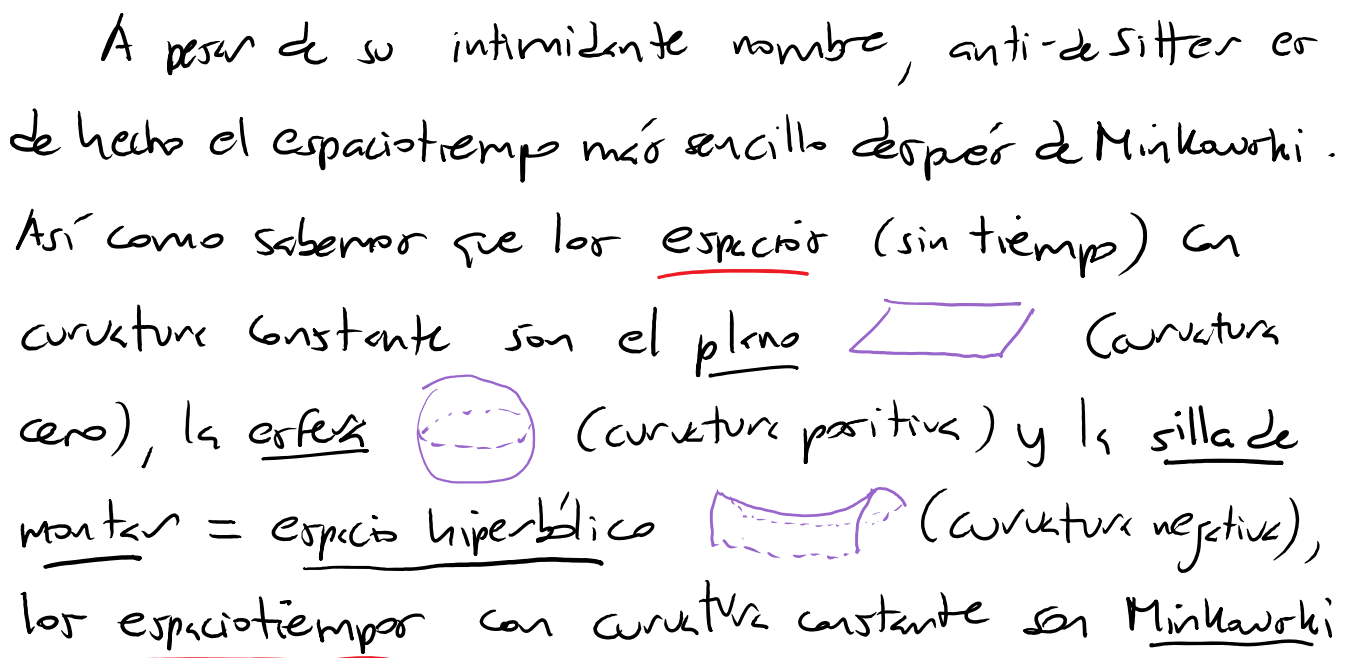 A pesar de su intimidante nombre, anti-de Sitter es
de hecho el espaciotiempo más sencillo después de Minkowski.
Así como sabemos que los espacios (sin tiempo) con
curvatura constante son el plano (curvatura
cero), la esfera (curvatura positiva) y la silla de
montar = espacio hiperbólico (curvatura negativa),
los espaciotiempos con curvatura constante son Minkowski